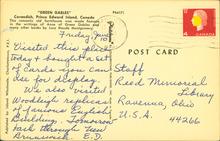 "GREEN GABLES"
Cavendish, Prince Edward Island, Canada
This century old farmhouse was made famous
by the writing of Anne of Green Gables and
other books by Lucy Maude Montgomery.
P64571
Friday, June
10
Visited this place
today & bought a set
of cards you can
use for display.
We also visited
Woodleigh replicas
of famous English
Building. Tomorrow
back through New
Brunswick. E.D.
POST CARD
Staff
Reed Memorial
Library
Ravenna, Ohio
U.S.A.
44266
4